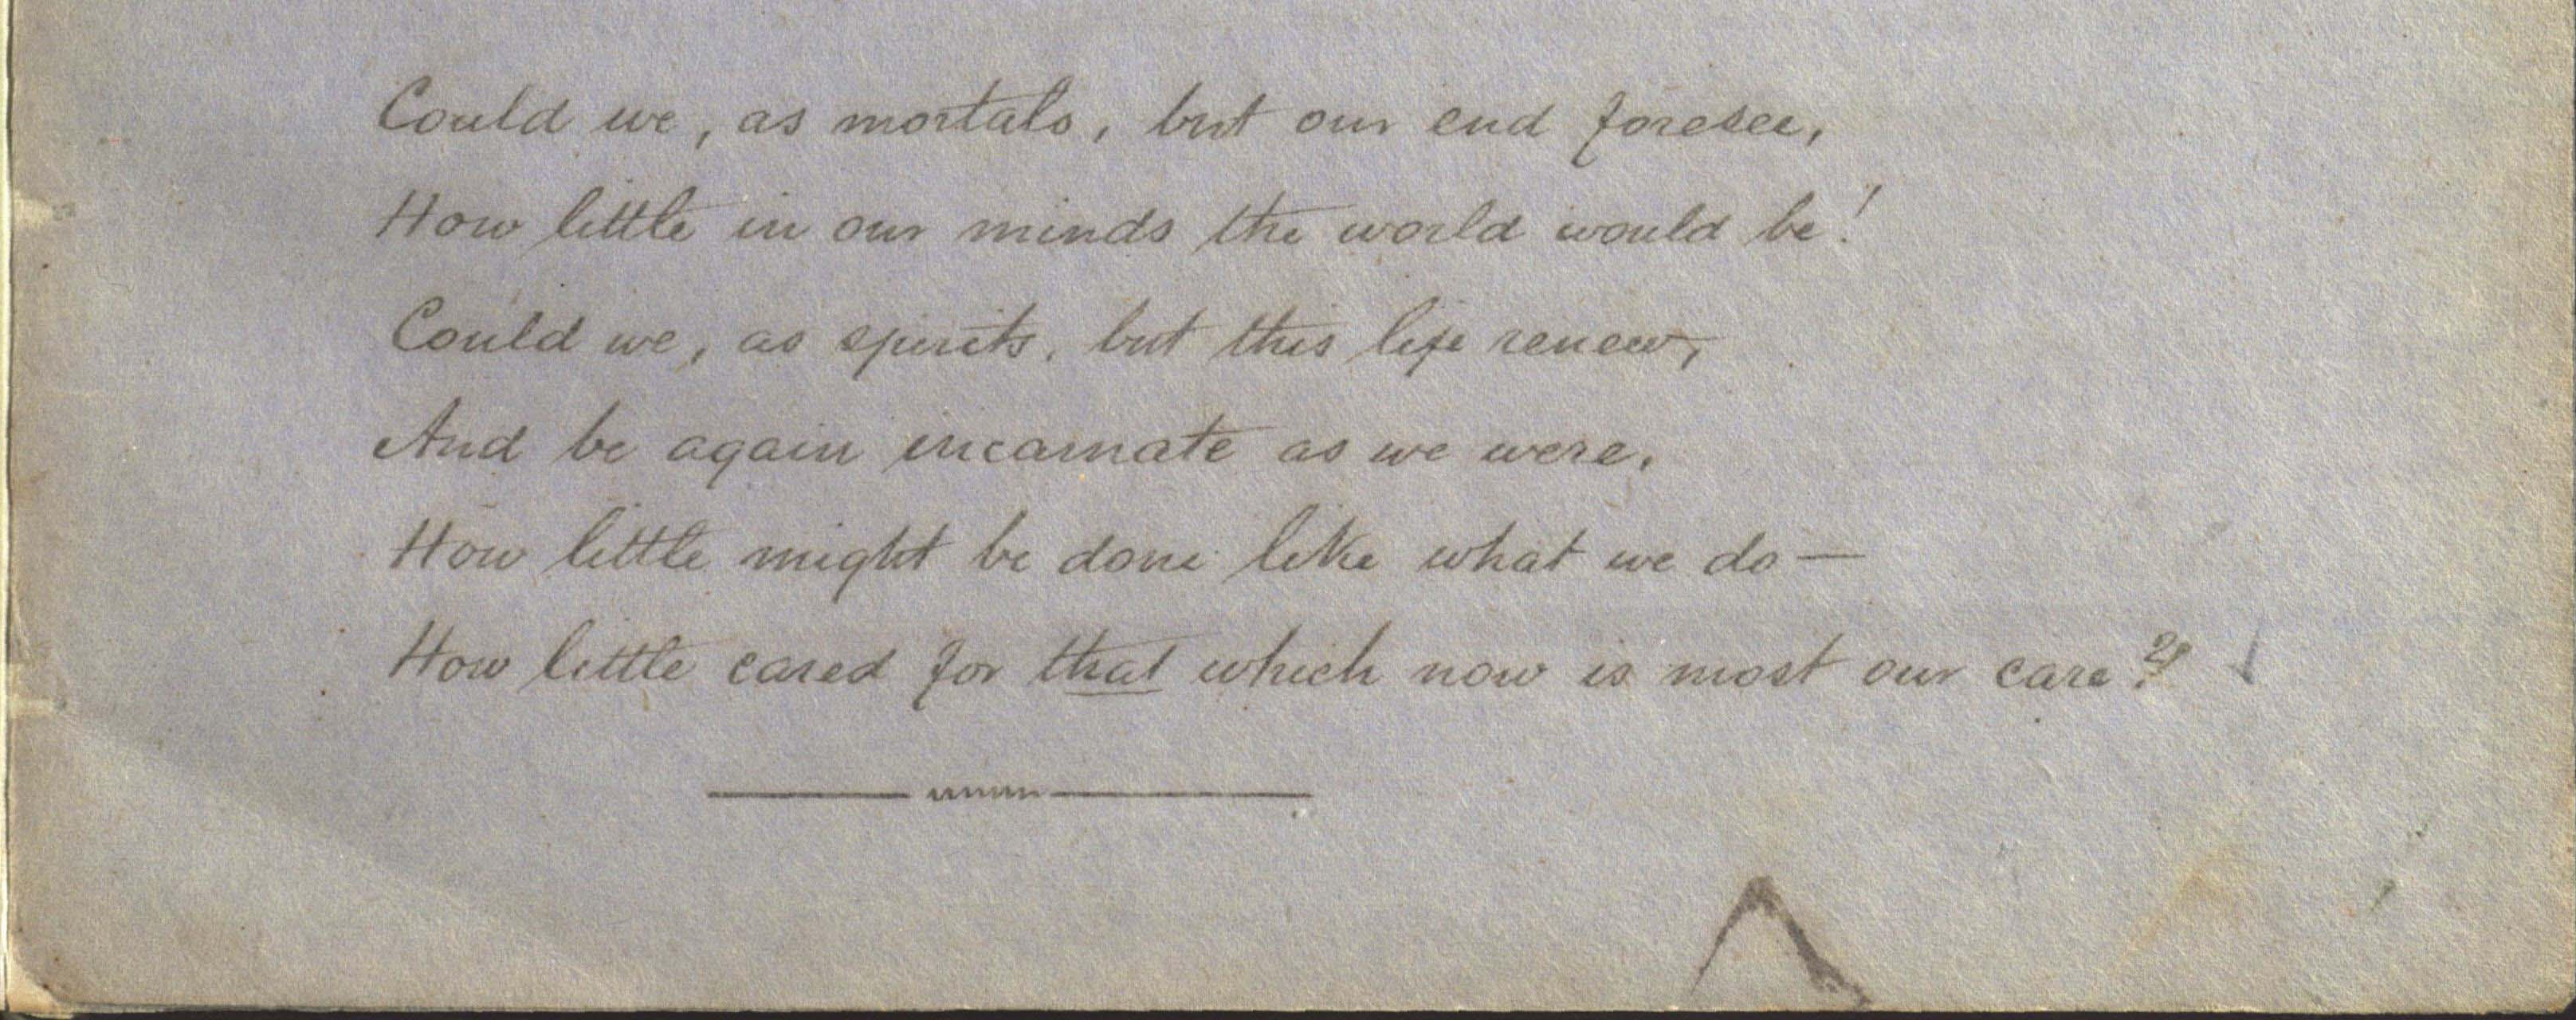 Could we, as mortals, but our end foresee,
How little in our minds the world would be!
Could we, as spirits, but this life renew,
And be again incarnate as we were,
How little might be done like what we do —
How little cared for that which now is most our care?